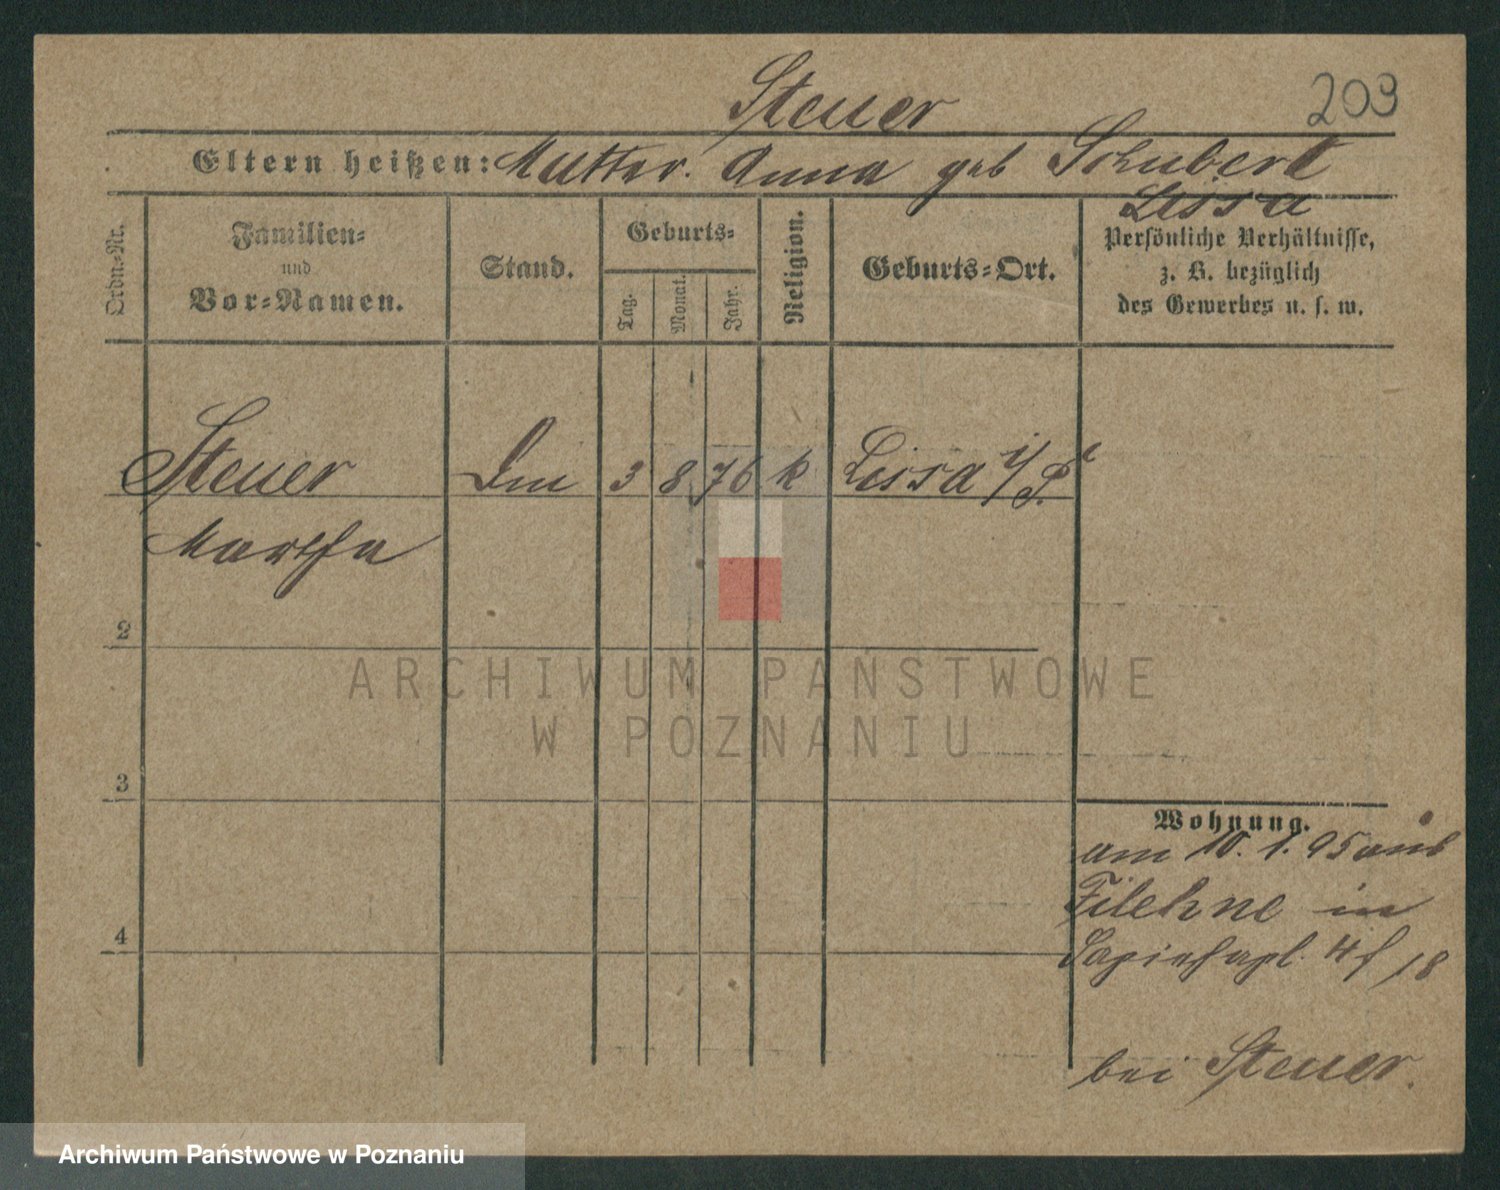 Steuer
203
Eltern heißen: Mutter. Anna geb Schubert
Lissa
Ordn.-Nr.
Familien-
und
Vor-Namen.
Stand.
Geburts-
Tag.
Monat.
Jahr.
Religion.
Geburts-Ort.
Persönliche Verhältnisse,
z. B. bezüglich
des Gewerbes u. s. w.
Steuer
3 8 76 k Lissa i/P.
Martha
2
ARCHIWUM PAŃSTWOWE
W POZNANIU
3
Wohnung.
am 10. 1. 95 aus
Filehne in
Sapiehapl. 4
18
4
bei Steuer.
Archiwum Państwowe w Poznaniu